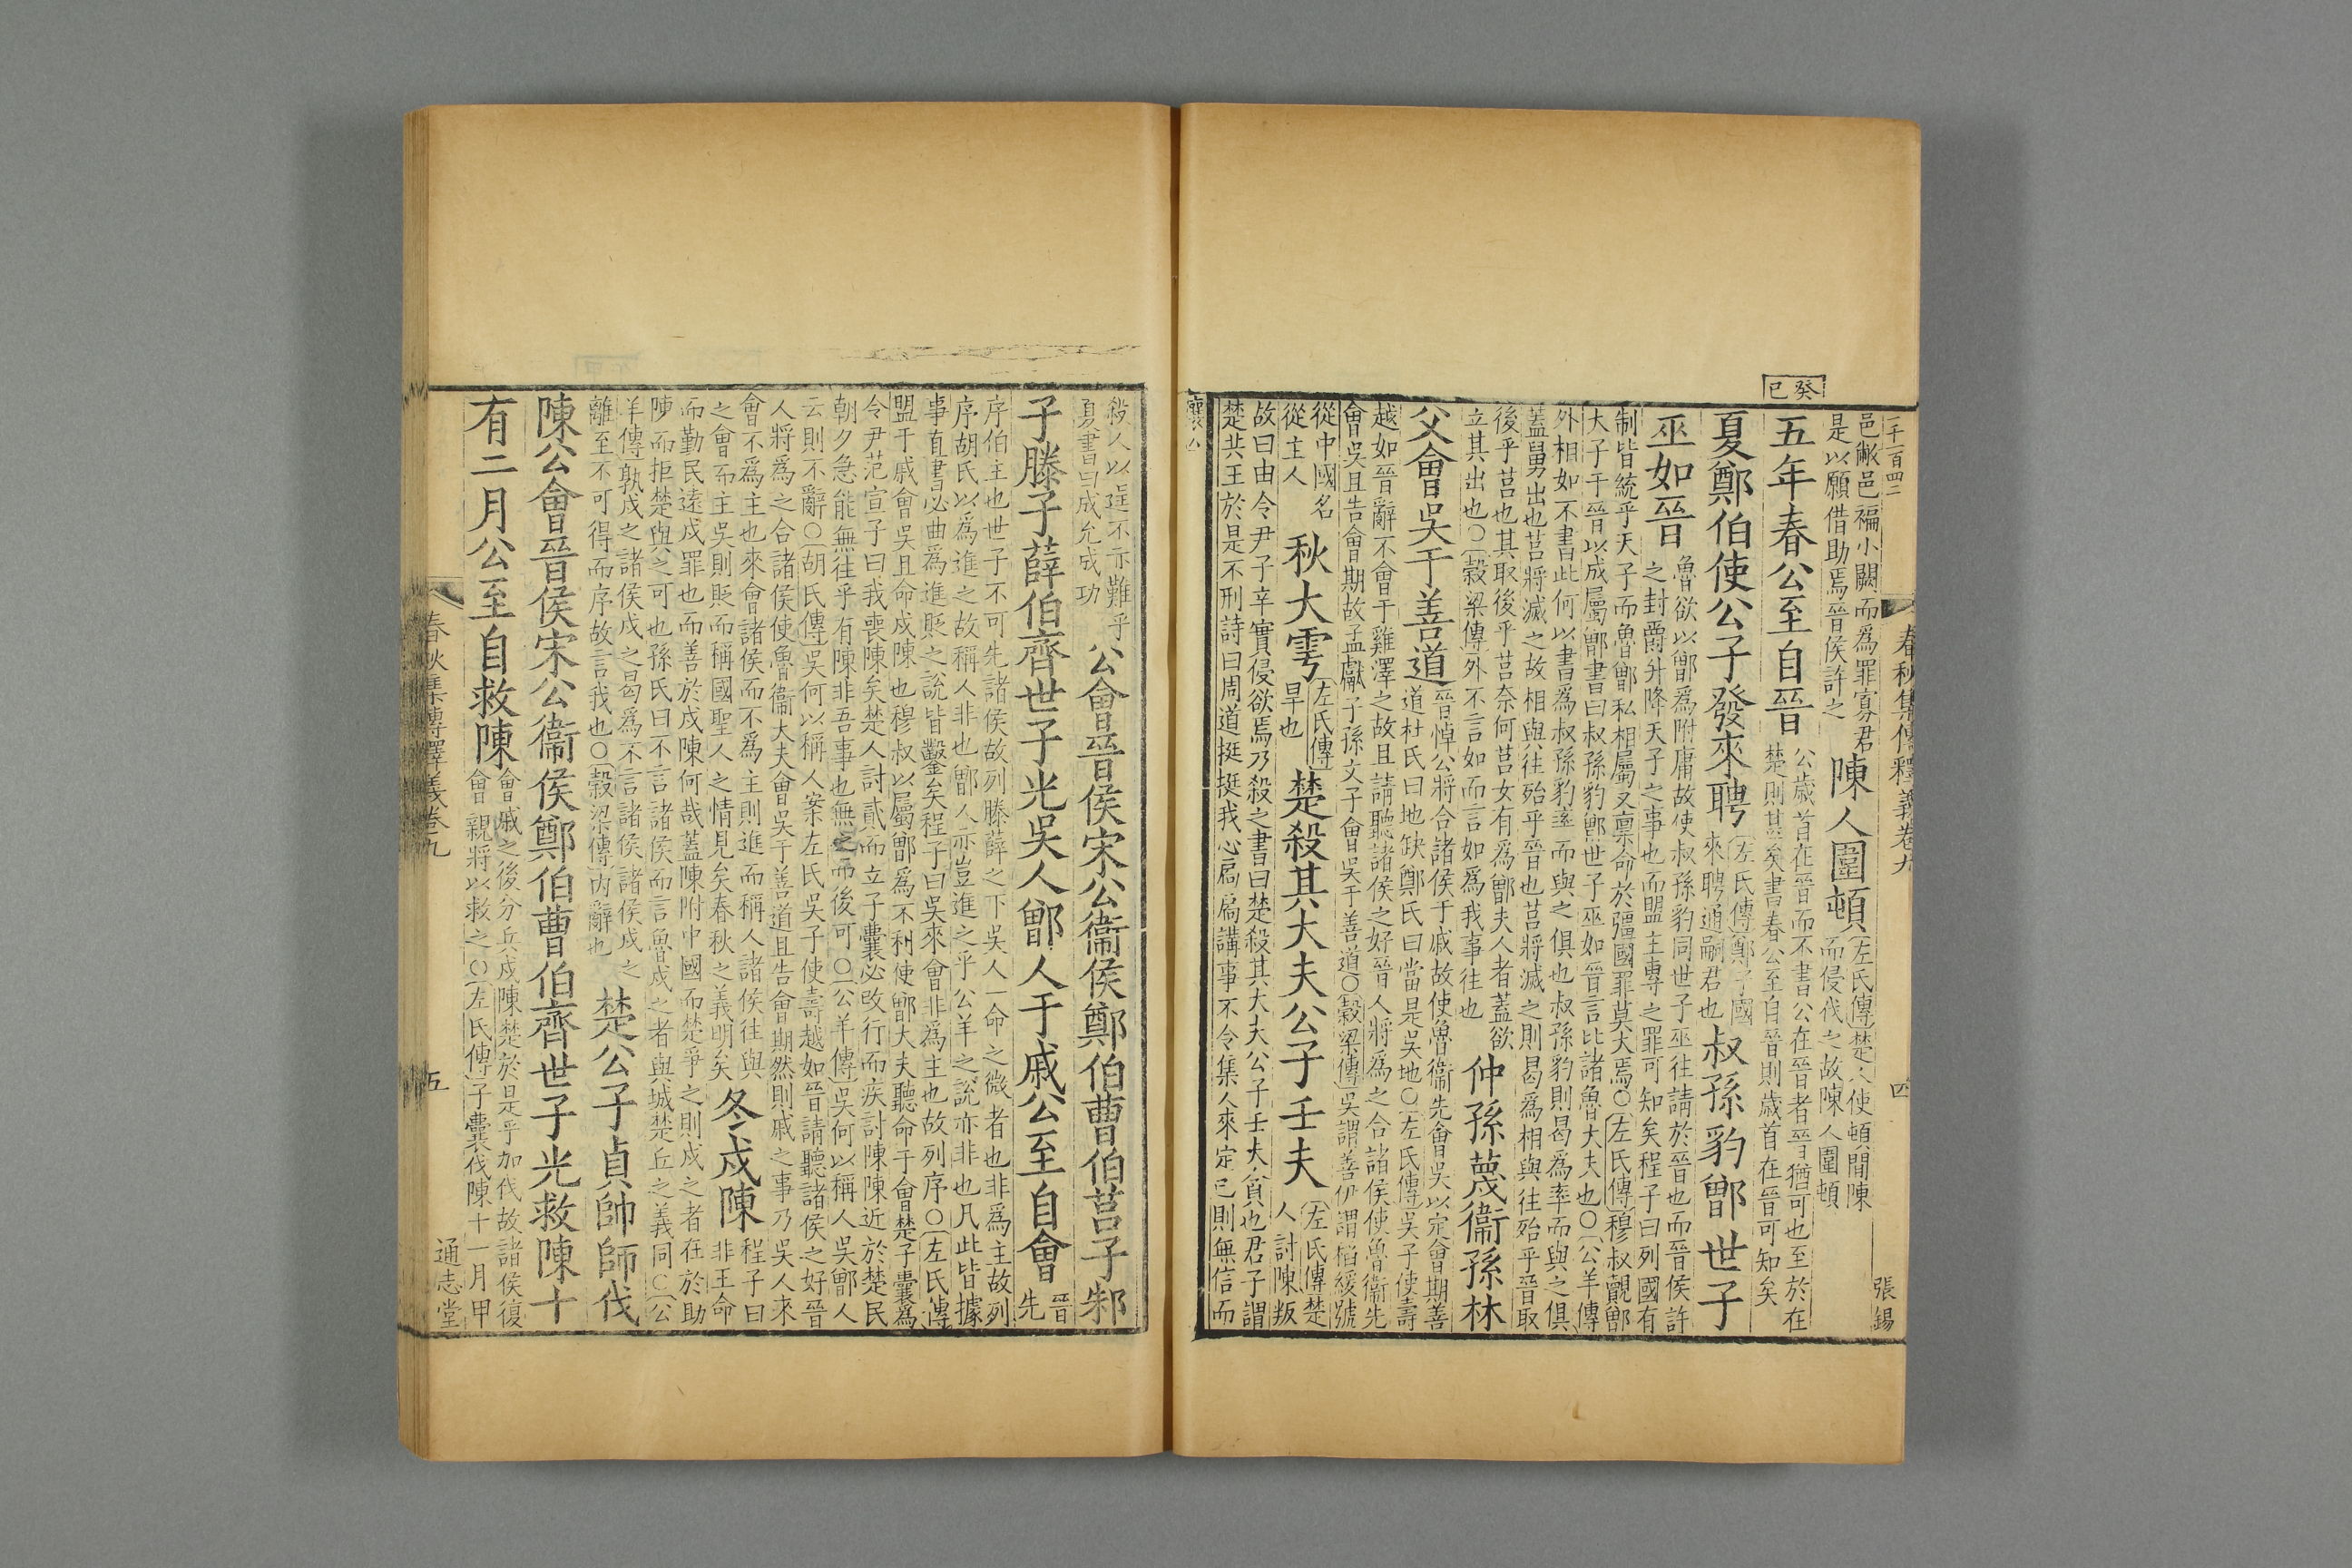 癸巳
春秋集傳釋義卷九
四
張錫
邑敝邑褊小闕而為罪寡君
是以願借助焉晉侯許之
陳人圍頓
左氏傳楚人使頓間陳
而侵伐之故陳人圍頓
五年春公至自晉
公歲首在晉而不書公在晉者晉猶可也至於在
楚則甚矣書春公至自晉則歲首在晉可知矣
夏鄭伯使公子發來聘
左氏傳鄭子國
來聘通嗣君也
叔孫豹鄫世子
巫如晉
魯欲以鄫為附庸故使叔孫豹同世子巫往請於晉也而晉侯許
之封爵升降天子之事也而盟主專之罪可知矣程子曰列國有
制皆統乎天子而魯鄫私相屬又稟命於彊國罪莫大焉○左氏傳穆叔覿鄫
大子于晉以成屬鄫書曰叔孫豹鄫世子巫如晉言比諸魯大夫也○公羊傳
外相如不書此何以書為叔孫豹率而與之俱也叔孫豹則曷為率而與之俱
蓋舅出也莒將滅之故相與往殆乎晉也莒將滅之則曷為相與往殆乎晉取
後乎莒也其取後乎莒奈何莒女有為鄫夫人者蓋欲
立其出也○穀梁傳外不言如而言如為我事往也
仲孫蔑衞孫林
父會吳于善道
晉悼公將合諸侯于戚故使魯衞先會吳以定會期善
道杜氏曰地缺鄭氏曰當是吳地○左氏傳吳子使壽
越如晉辭不會于雞澤之故且請聽諸侯之好晉人將為之合諸侯使魯衞先
會吳且告會期故孟獻子孫文子會吳于善道○穀梁傳吳謂善伊謂稻緩號
從中國名
從主人
秋大雩
左氏傳
旱也
楚殺其大夫公子壬夫
左氏傳楚
人討陳叛
故曰由令尹子辛實侵欲焉乃殺之書曰楚殺其大夫公子壬夫貪也君子謂
楚共王於是不刑詩曰周道挺挺我心扃扃講事不令集人來定己則無信而
襄公
殺人以逞不亦難乎
夏書曰成允成功
公會晉侯宋公衞侯鄭伯曹伯莒子邾
子滕子薛伯齊世子光吳人鄫人于戚公至自會
晉
先
序伯主也世子不可先諸侯故列滕薛之下吳人一命之微者也非為主故列
序胡氏以為進之故稱人非也鄫人亦豈進之乎公羊之說亦非也凡此皆據
事直書必曲為進貶之說皆鑿矣程子曰吳來會非為主也故列序○左氏傳
盟于戚會吳且命戍陳也穆叔以屬鄫為不利使鄫大夫聽命于會楚子囊為
令尹范宣子曰我喪陳矣楚人討貳而立子囊必改行而疾討陳陳近於楚民
朝夕急能無往乎有陳非吾事也無之而後可○公羊傳吳何以稱人吳鄫人
云則不辭○胡氏傳吳何以稱人案左氏吳子使壽越如晉請聽諸侯之好晉
人將為之合諸侯使魯衞大夫會吳于善道且告會期然則戚之事乃吳人來
會不為主也來會諸侯而不為主則進而稱人諸侯往與
之會而主吳則貶而稱國聖人之情見矣春秋之義明矣
冬戍陳
程子曰
非王命
而勤民遠戍罪也而善於戍陳何哉蓋陳附中國而楚爭之則戍之者在於助
陳而拒楚與之可也孫氏曰不言諸侯而言魯戍之者與城楚丘之義同○公
羊傳孰戍之諸侯戍之曷為不言諸侯戍之
離至不可得而序故言我也○穀梁傳內辭也
楚公子貞帥師伐
陳公會晉侯宋公衞侯鄭伯曹伯齊世子光救陳十
有二月公至自救陳
會戚之後分兵戍陳楚於是乎加伐故諸侯復
會親將以救之○左氏傳子囊伐陳十一月甲
春秋集傳釋義卷九
五
通志堂